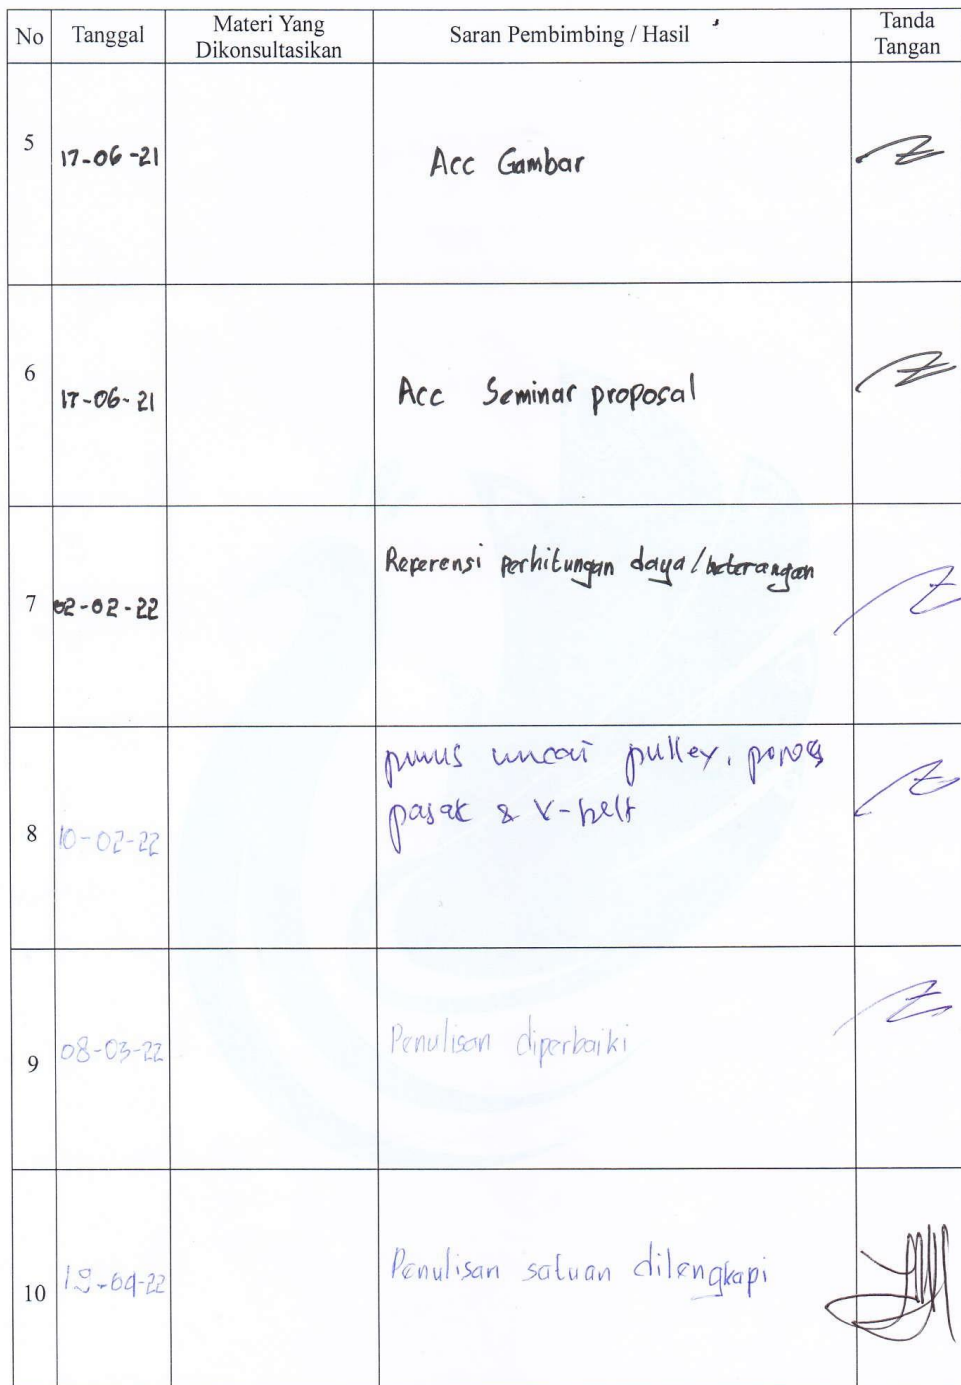 No Tanggal Materi Yang Dikonsultasikan Saran Pembimbing / Hasil Tanda Tangan
5 17-06-21 Acc Gambar
6 17-06-21 Acc Seminar proposal
7 02-02-22 Referensi perhitungan daya/keterangan
8 10-02-22 pulley, poros
pasak & V-belt
9 08-03-22 Penulisan diperbaiki
10 Penulisan satuan dilengkapi